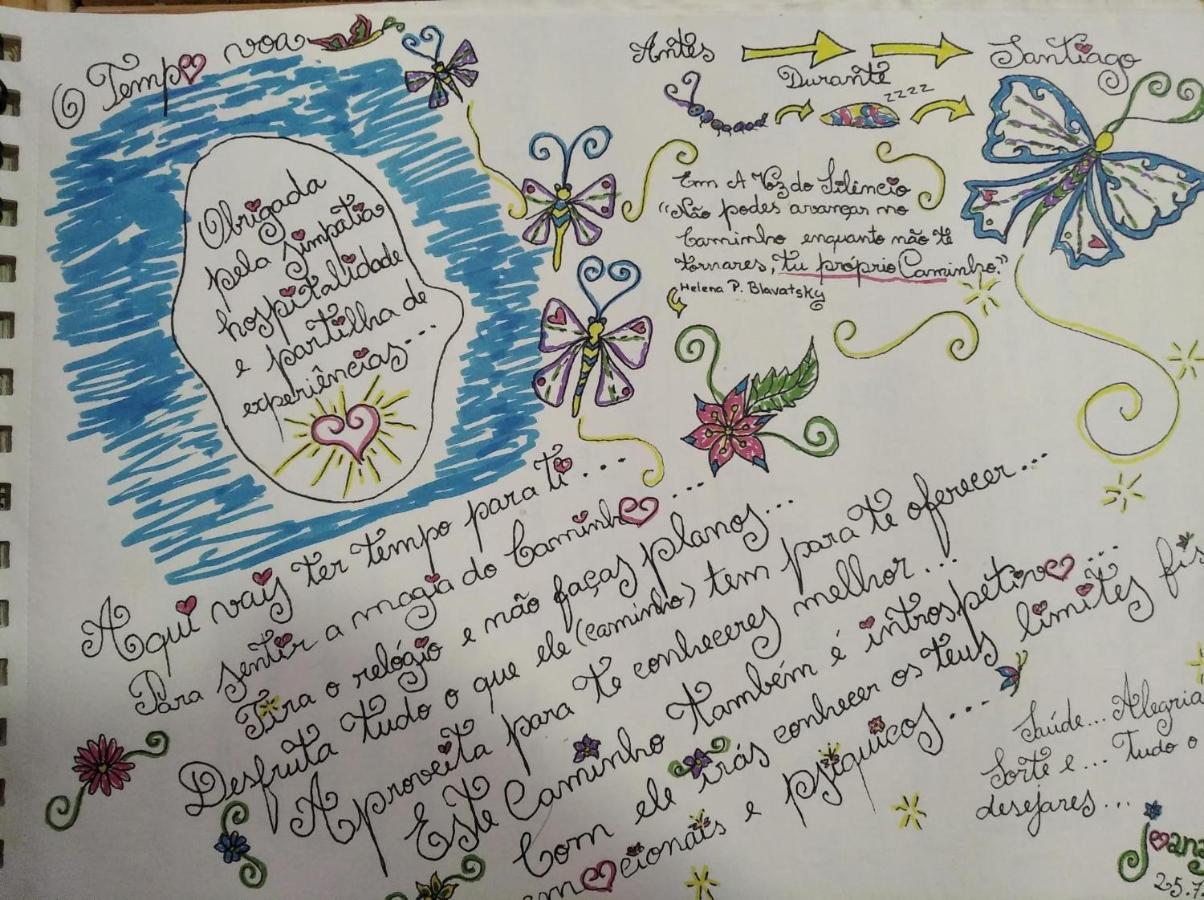 O Tempo voa
Obrigada
pela simpatia
hospitalidade
e partilha de
experiências...
Antes
Durante
Santiago
zzzz
Em A Voz do Silêncio
"Não podes avançar no
Caminho enquanto não te
tornares, tu próprio Caminho."
Helena P. Blavatsky
Aqui vais ter tempo para ti...
Para sentir a magia do Caminho...
Tira o relógio e não faças planos...
Desfruta tudo o que ele (caminho) tem para te oferecer...
Aproveita para te conheceres melhor...
Este Caminho também é introspetivo...
Com ele irás conhecer os teus limites fis
emocionais e psíquicos...
Saúde... Alegria
Sorte e... Tudo o
desejares...
Joana
25.7